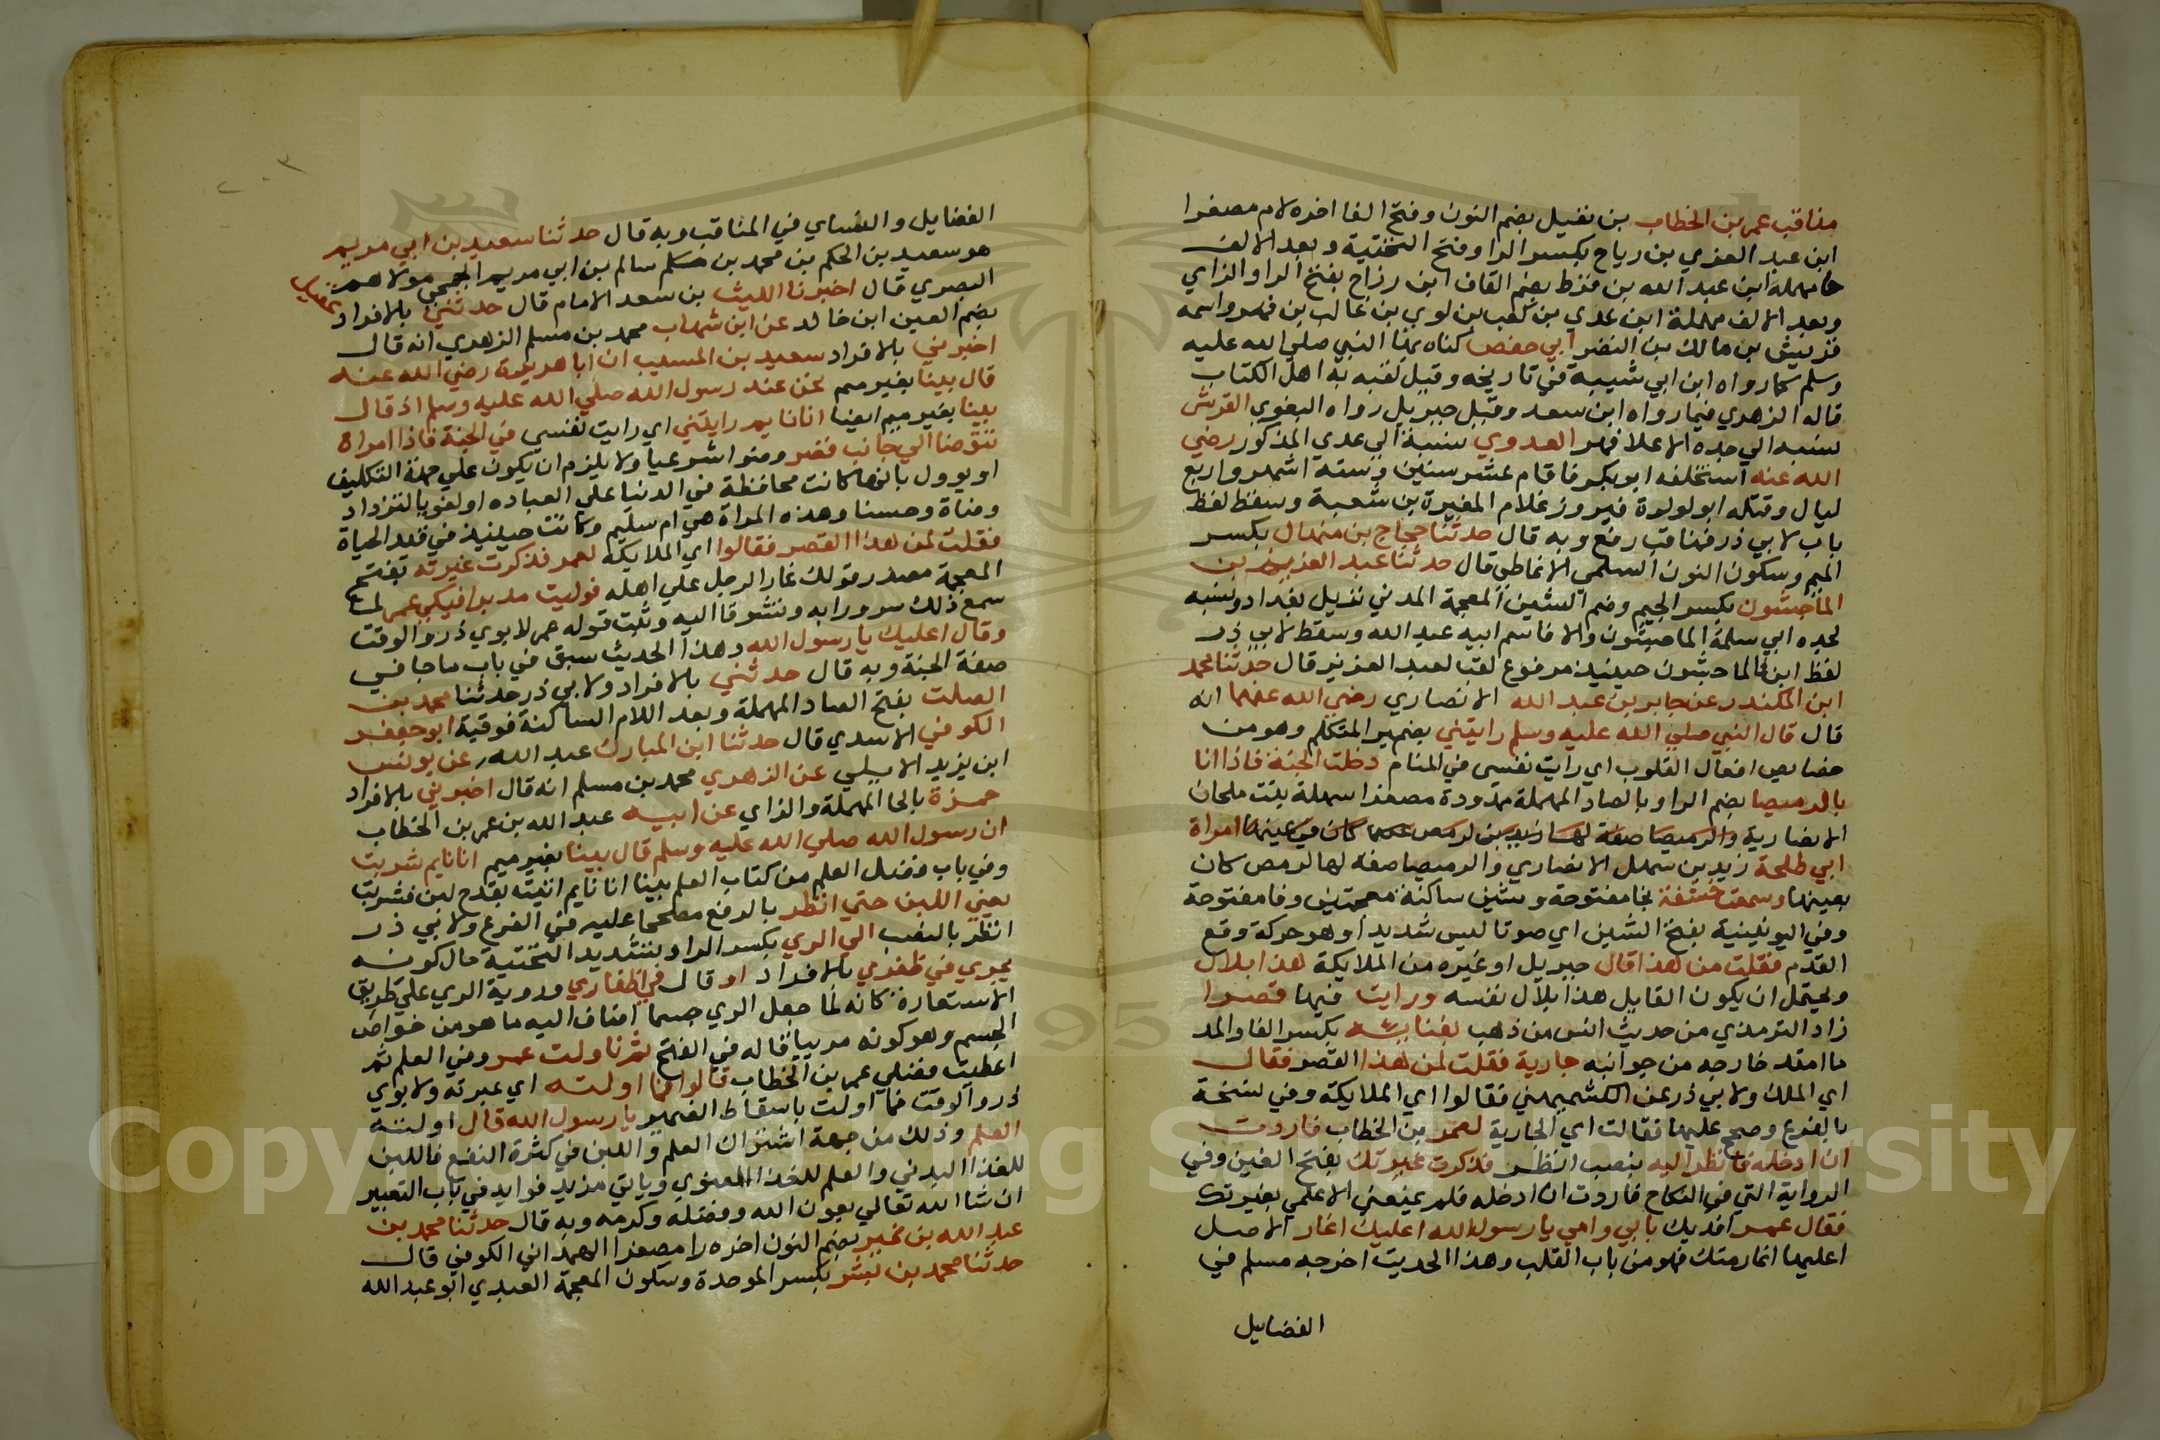 مناقب عمر بن الخطاب بن نفيل بضم النون وفتح الفا اخره لام مصغرا
ابن عبد العزي بن رياح بكسر الرا وفتح التحتية وبعد الالف
حا مهملة ابن عبد الله بن قرط بضم القاف ابن رزاح بفتح الرا والزاي
وبعد الالف مهملة ابن عدي بن كعب بن لوي بن غالب بن فهر واسمه
قريش بن مالك بن النضر ابي حفص كناه بهذا النبي صلي الله عليه
وسلم كما رواه ابن ابي شيبة في تاريخه وقيل لقبه به اهل الكتاب
قاله الزهري فيما رواه ابن سعد وقيل جبريل رواه البغوي القرشي
نسبه الي جده الاعلا فهر العدوي نسبة الي عدي المذكور رضي
الله عنه استخلفه ابو بكر فاقام عشر سنين وستة اشهر واربع
ليال وقتله ابو لولوة فيروز غلام المغيرة بن شعبة وسقط لفظ
باب لابي ذر فمناقب رفع وبه قال حدثنا حجاج بن منهال بكسر
الميم وسكون النون السلمي الانماطي قال حدثنا عبد العزيز بن
الماجشون بكسر الجيم وضم الشين المعجمة المدني نزيل بغداد ونسبه
لجده ابي سلمة الماجشون والا فاسم ابيه عبد الله وسقط لابي ذر
لفظ ابن فالماجشون حينيذ مرفوع لقب لعبد العزيز قال حدثنا محمد
ابن المكندر عن جابر بن عبد الله الانصاري رضي الله عنهما انه
قال قال النبي صلي الله عليه وسلم رايتني بضمير المتكلم وهو من
خصايص افعال القلوب اي رايت نفسي في المنام دخلت الجنة فاذا انا
بالرميصا بضم الرا وبالصاد المهملة ممدودة مصغرا سهلة بنت ملحان
الانصارية والرميصا صفة لها لرمص كان في عينها امراة
ابي طلحة زيد بن سهل الانصاري والرميصا صفه لها لرمص كان
بعينها وسمعت خشفة بخا مفتوحة وشين ساكنة معجمتين وفا مفتوحة
وفي اليونينية بفتح الشين اي صوتا ليس شديدا وهو حركة وقع
القدم فقلت من هذا قال جبريل او غيره من الملايكة هذا بلال
ويحتمل ان يكون القايل هذا بلال نفسه ورايت فيها قصرا
زاد الترمذي من حديث انس من ذهب بفنايه بكسر الفا والمد
ما امتد خارجه من جوانبه جارية فقلت لمن هذا القصر فقال
اي الملك ولابي ذر عن الكشميهني فقالوا اي الملايكة وفي نسخة
بالفرع وصحح عليها فقالت اي الجارية لعمر بن الخطاب فاردت
ان ادخله فانظر اليه بنصب انظر فذكرت غيرتك بفتح الغين وفي
الرواية التي في النكاح فاردت ان ادخله فلم يمنعني الا علمي بغيرتك
فقال عمر افديك بابي وامي يا رسول الله اعليك اغار الاصل
اعليها اغار منك فهو من باب القلب وهذا الحديث اخرجه مسلم في
الفضايل
الفضايل والنساي في المناقب وبه قال حدثنا سعيد بن ابي مريم
هو سعيد بن الحكم بن محمد بن سالم بن ابي مريم الجمحي مولاهم
البصري قال اخبرنا الليث بن سعد الامام قال حدثني بالافراد عقيل
بضم العين ابن خالد عن ابن شهاب محمد بن مسلم الزهري انه قال
اخبرني بالافراد سعيد بن المسيب ان ابا هريرة رضي الله عنه
قال بينا بغير ميم نحن عند رسول الله صلي الله عليه وسلم اذ قال
بينا بغير ميم ايضا انا نايم رايتني اي رايت نفسي في الجنة فاذا امراة
تتوضا الي جانب قصر وضوا شرعيا ولا يلزم ان يكون علي جهة التكليف
او يوول بانها كانت محافظة في الدنيا علي العباده او لغويا لتزداد
وضاة وحسنا وهذه المراة هي ام سليم وكانت حينيذ في قيد الحياة
فقلت لمن هذا القصر فقالوا اي الملايكة لعمر فذكرت غيرته بفتح
المعجمة مصدر قولك غار الرجل علي اهله فوليت مدبرا فبكي عمر لما
سمع ذلك سرورا به وتشوقا اليه وثبت قوله عمر لابوي ذر والوقت
وقال اعليك يا رسول الله وهذا الحديث سبق في باب ما جا في
صفة الجنة وبه قال حدثني بالافراد ولابي ذر حدثنا محمد بن
الصلت بفتح الصاد المهملة وبعد اللام الساكنة فوقية ابو جعفر
الكوفي الاسدي قال حدثنا ابن المبارك عبد الله عن يونس
ابن يزيد الايلي عن الزهري محمد بن مسلم انه قال اخبرني بالافراد
حمزة بالحا المهملة والزاي عن ابيه عبد الله بن عمر بن الخطاب
ان رسول الله صلي الله عليه وسلم قال بينا بغير ميم انا نايم شربت
وفي باب فضل العلم من كتاب العلم بينا انا نايم اتيت بقدح لبن فشربت
يعني اللبن حتي انظر بالرفع مصححا عليه في الفرع ولابي ذر
انظر بالنصب الي الري بكسر الرا وبتشديد التحتية حال كونه
يجري في ظفري بالافراد او قال في اظفاري وروية الري علي طريق
الاستعارة كانه لما جعل الري جسما اضاف اليه ما هو من خواص
الجسم وهو كونه مرييا قاله في الفتح ثم ناولت عمر وفي العلم ثم
اعطيت فضلي عمر بن الخطاب قالوا فما اولته اي عبرته ولابوي
ذر والوقت فما اولت باسقاط الضمير يا رسول الله قال اولته
العلم وذلك من جهة اشتراك العلم واللبن في كثرة النفع فاللبن
للغذا البدني والعلم للغذا المعنوي وياتي مزيد فوايد في باب التعبير
ان شا الله تعالي بعون الله وفضله وكرمه وبه قال حدثنا محمد بن
عبد الله بن نمير بضم النون اخره را مصغرا الهمداني الكوفي قال
حدثنا محمد بن بشر بكسر الموحدة وسكون المعجمة العبدي ابو عبد الله
Copyright © King Saud University